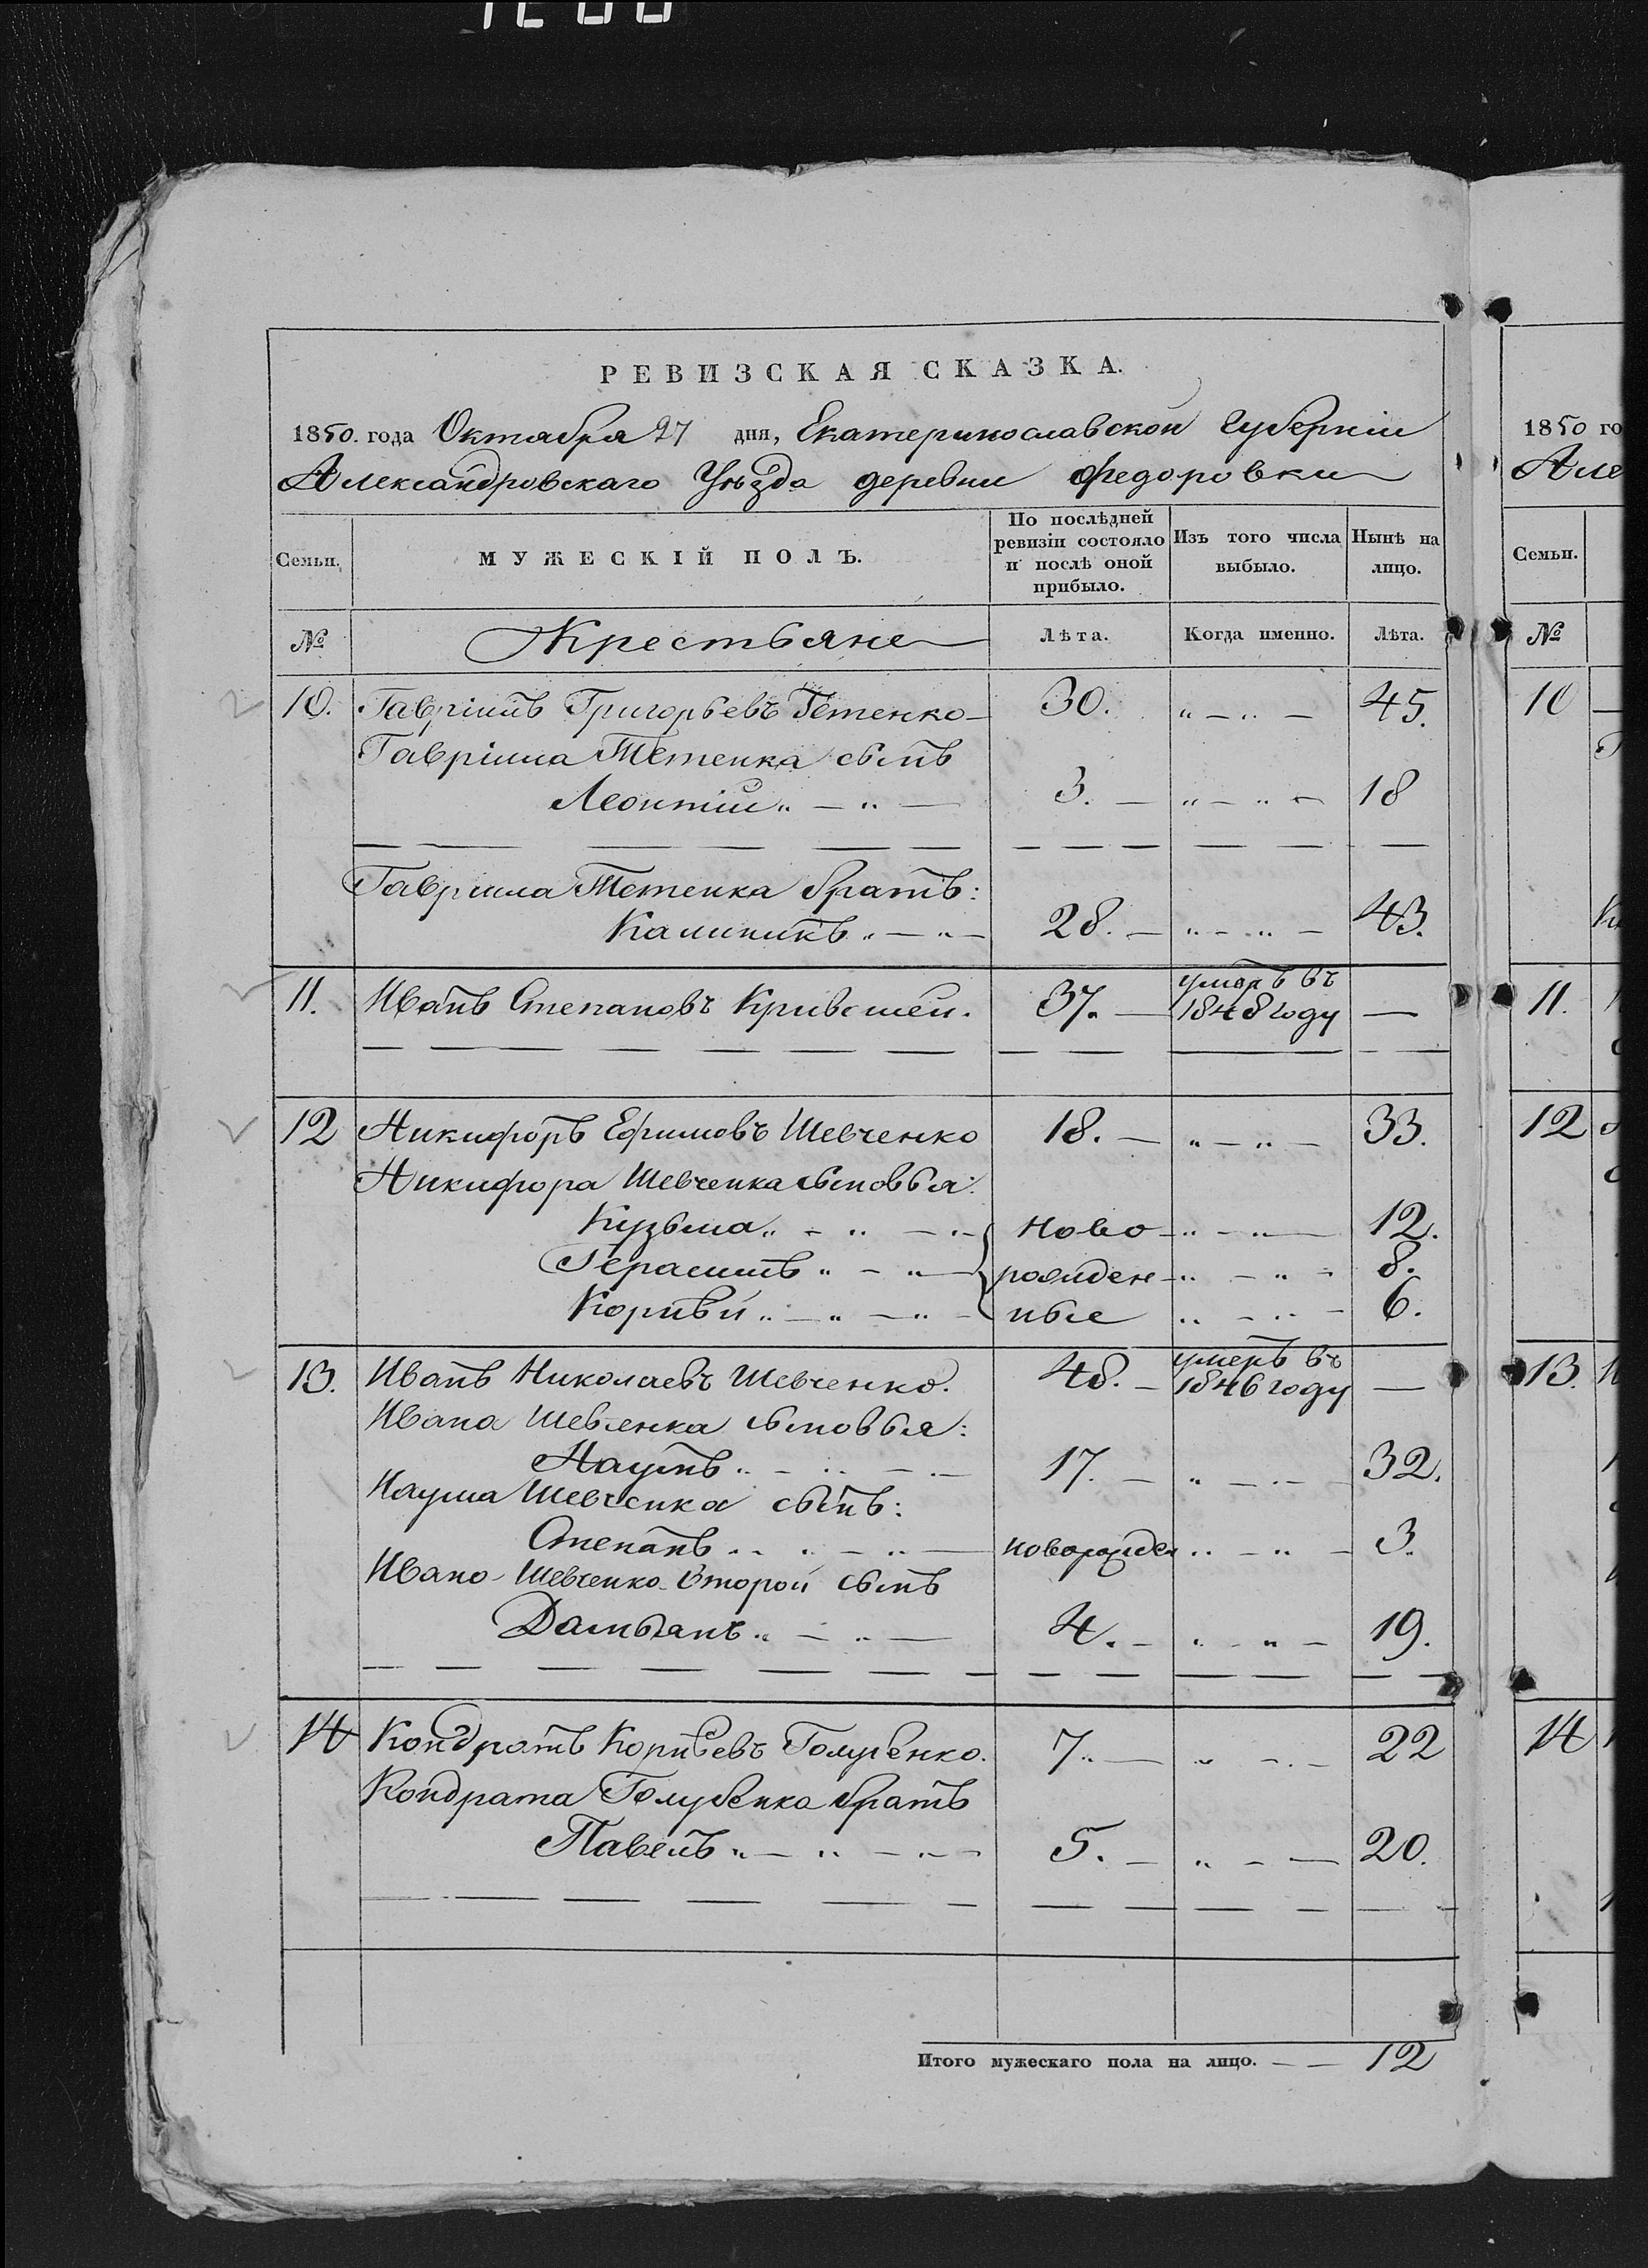 РЕВИЗСКАЯ СКАЗКА.
1850. года Октября 27 дня, Екатеринославской Губерніи
Александровскаго Уѣзда деревни Федоровки
Семьи. МУЖЕСКІЙ ПОЛЪ. По послѣдней ревизіи состояло и послѣ оной прибыло. Изъ того числа выбыло. Нынѣ на лицо.
№ Крестьяне Лѣта. Когда именно. Лѣта.
10. Гавріилъ Григорьевъ Тетенко 30. „ — „ — 45.
Гавріила Тетенка сынъ
Леонтій „ — „ — 3. — „ — „ — 18
Гавриила Тетенка братъ:
Калиникъ „ — „ — 28. — „ — „ — 43.
11. Иванъ Степановъ Кривошей. 37. — умеръ въ 1848 году —
12 Никифоръ Ефимовъ Шевченко 18. — „ — „ — 33.
Никифора Шевченка сыновья:
Кузьма „ — „ — „ — ново- „ — „ — 12.
Герасимъ „ — „ — рожден- „ — „ — 8.
Корнѣй „ — „ — „ — ные „ — „ — 6.
13. Иванъ Николаевъ Шевченко. 48. — умеръ въ 1846 году —
Ивана Шевченка сыновья:
Наумъ „ — „ — „ — 17. — „ — „ — 32.
Наума Шевченка сынъ:
Степанъ „ — „ — „ — новорожден „ — „ — 3.
Ивано Шевченко второй сынъ
Дамьянъ „ — „ — 4. — „ — „ — 19.
14 Кондратъ Корнѣевъ Голубенко. 7. — „ — „ — 22
Кондрата Голубенка братъ
Павелъ „ — „ — „ — 5. — „ — — 20.
Итого мужескаго пола на лицо. — — 12
1850 го
Але
Семьи.
№
10
11.
12
13.
14